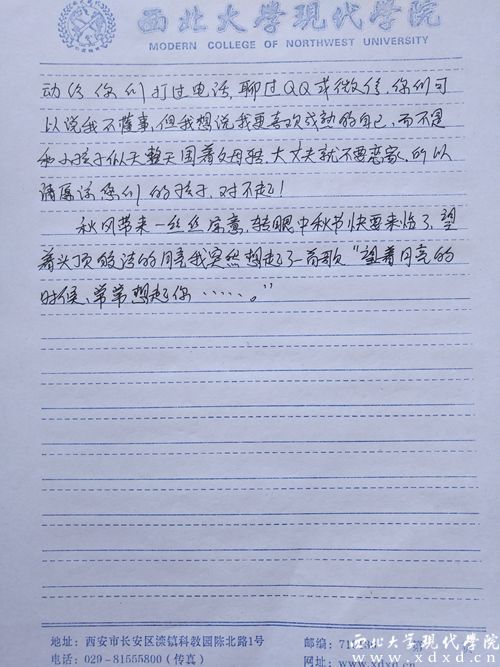 西北大学现代学院
MODERN COLLEGE OF NORTHWEST UNIVERSITY
动给你们打过电话,聊过QQ或微信,你们可
以说我不懂事,但我想说我更喜欢成熟的自己,而不是
和小孩子似天整天围着父母转,大丈夫就不要恋家,所以
请原谅您们的孩子,对不起!
秋风带来一丝丝凉意,转眼中秋节快要来临了,望
着头顶皎洁的月亮我突然想起了一首歌“望着月亮的
时候、常常想起你……。”
地址:西安市长安区滦镇科教园陈北路1号
邮编:710
电话:029-81555800(传真)
网址:www.
西北大学现代学院
www.xdxd.cn